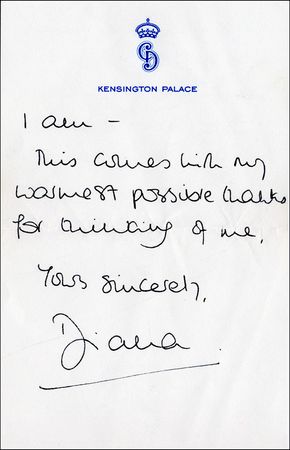 KENSINGTON PALACE
I am -
This comes with my
warmest possible thanks
for thinking of me,
Yours sincerely,
Diana.